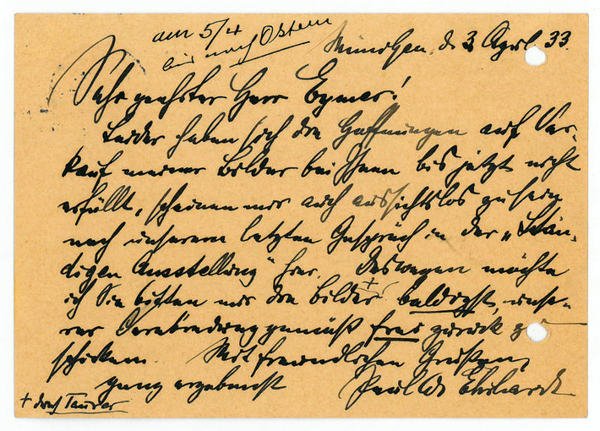 am 5/4
bis nach Ostern
München, d. 3. April 33.
Sehr geehrter Herr Eymer!
Leider haben sich die Hoffnungen auf Ver-
kauf meiner Bilder bei Ihnen bis jetzt nicht
erfüllt, scheinen mir auch aussichtslos zu sein
nach unserem letzten Gespräch in der „Stän-
digen Ausstellung" hier. Deswegen möchte
ich Sie bitten mir die Bilder + baldigst, unse-
rer Vereinbarung gemäß frei zurück zu
schicken. Mit freundlichen Grüßen,
ganz ergebenst Paul W. Ehrhardt
+ durch Taurer